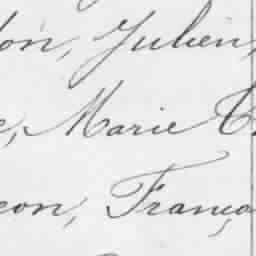 on, Julien,
e, Marie
eon, França